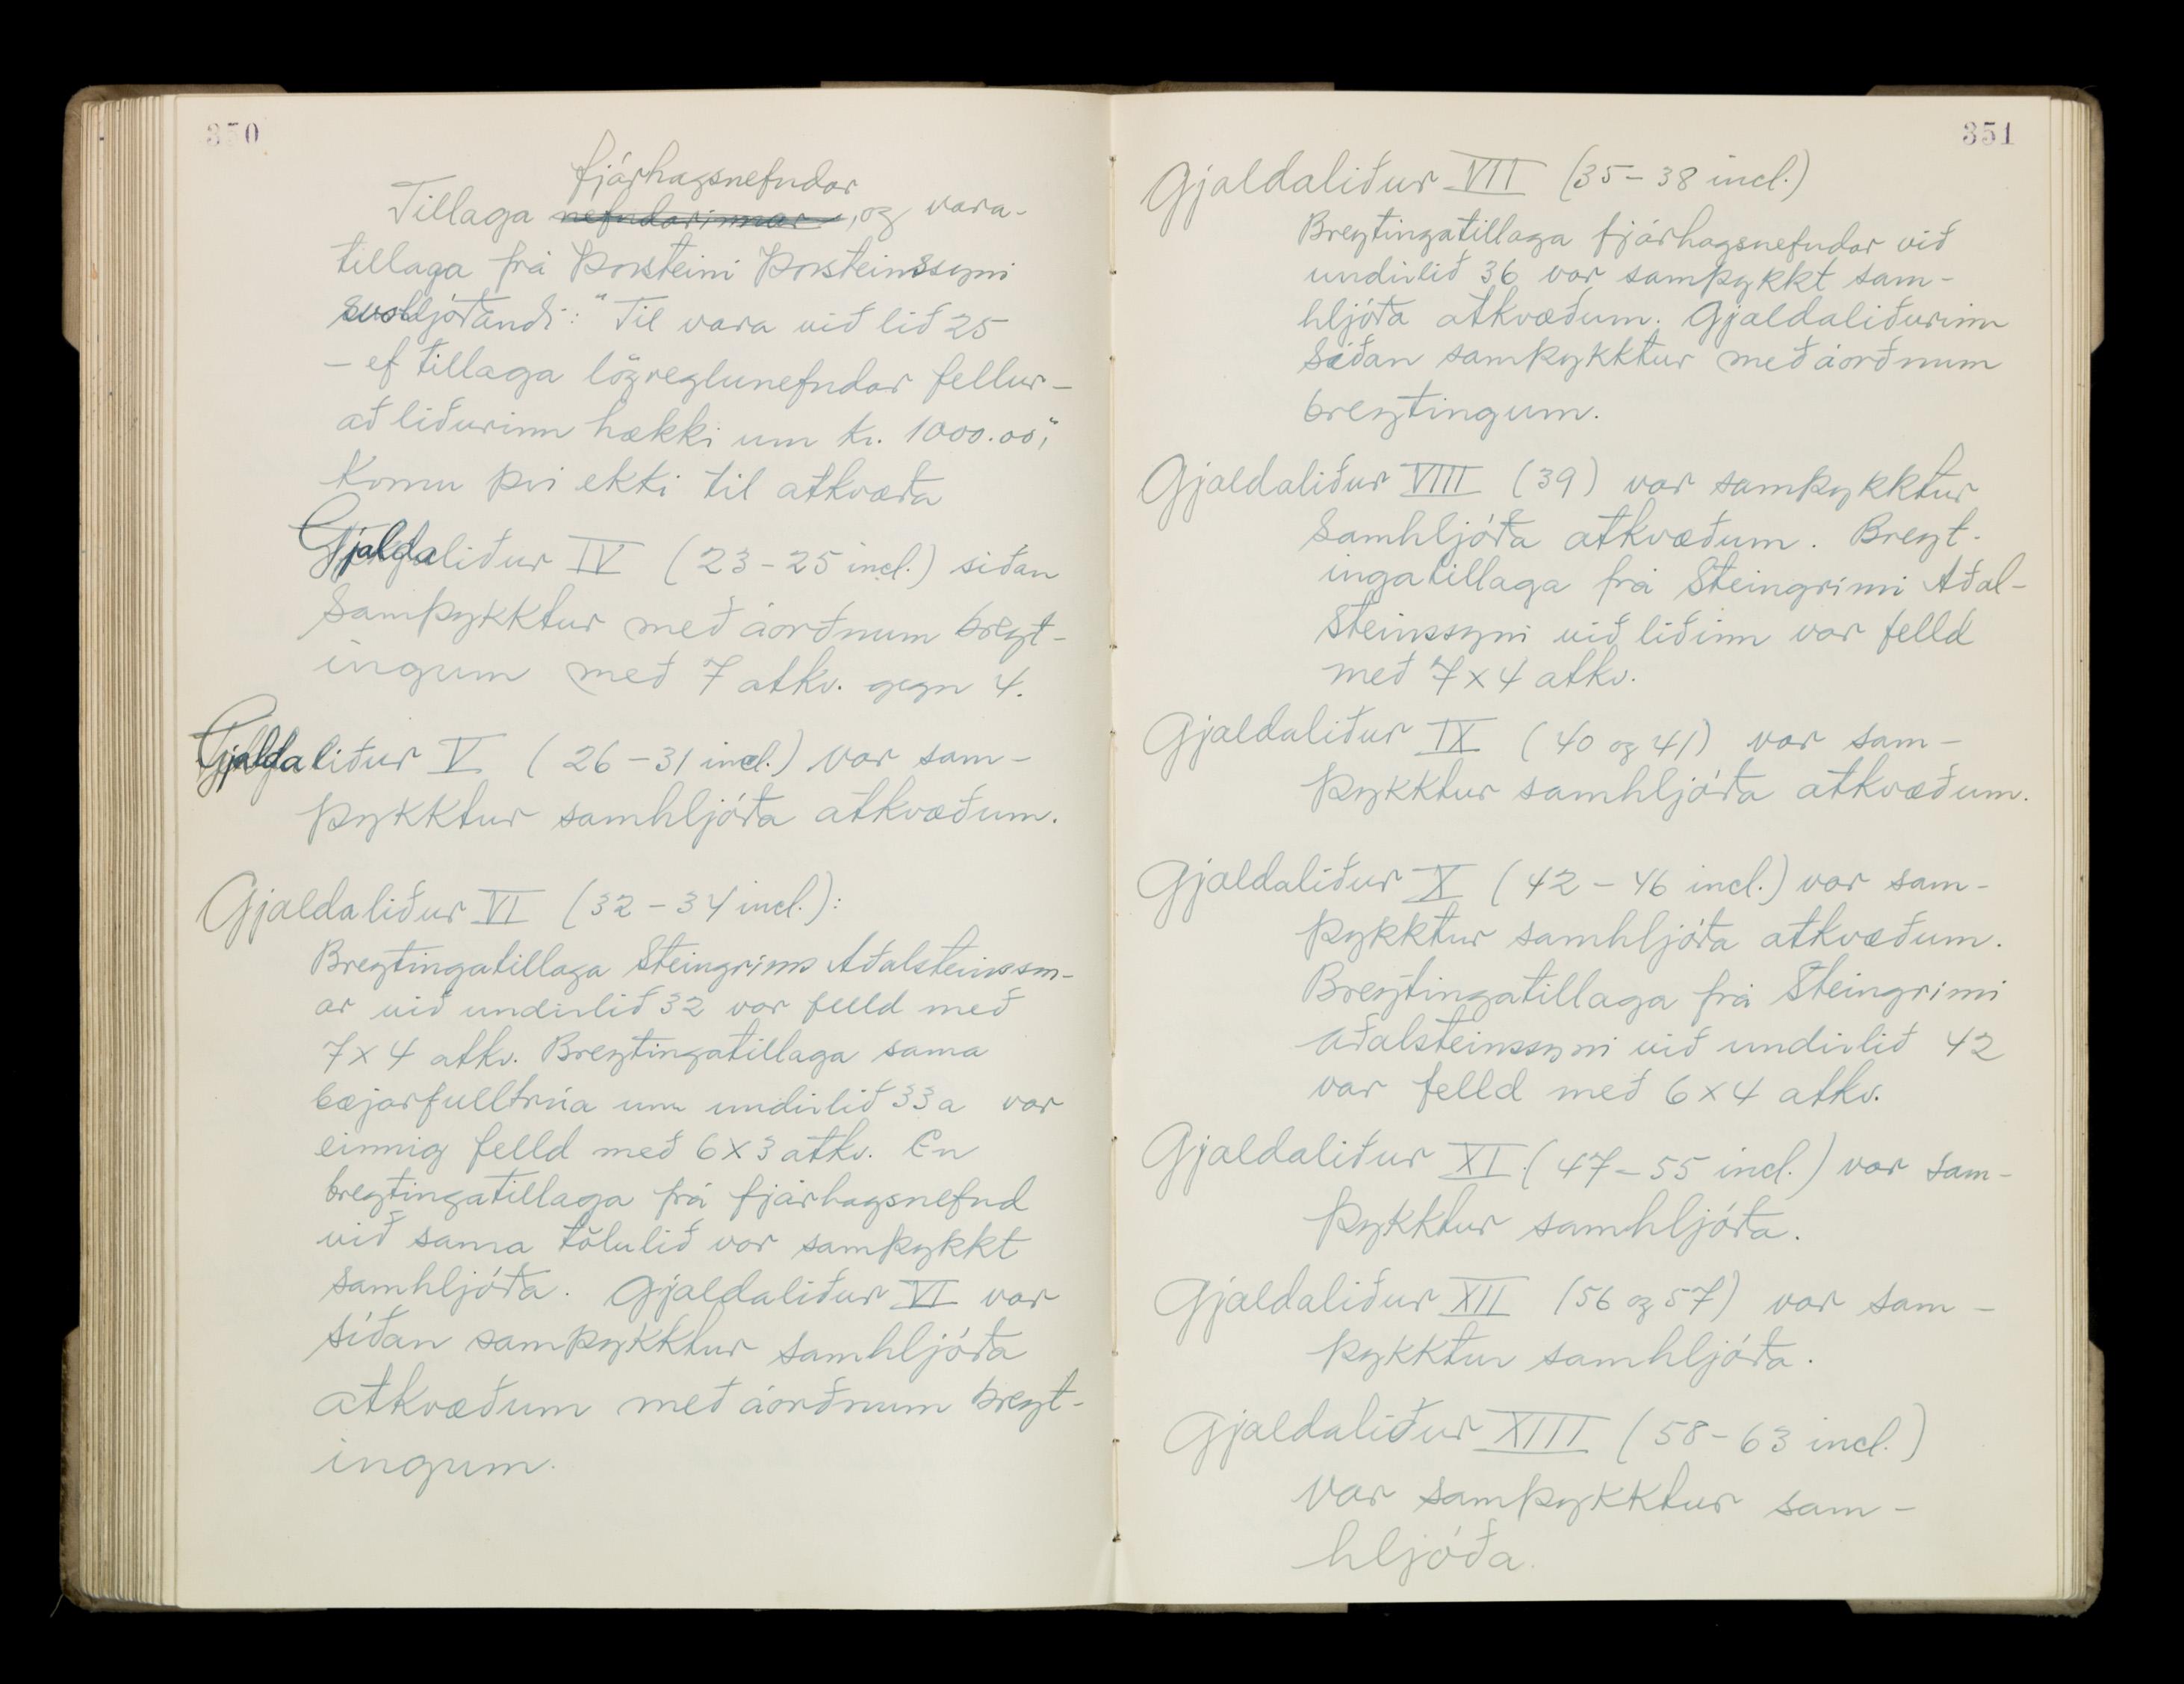 350
fjárhagsnefndar
Tillaga nefndarinnar, og vara-
tillaga frá Þorsteini Þorsteinssyni
svohljóðandi: "Til vara við lið 25
- ef tillaga lögreglunefndar fellur -
að liðurinn hækki um kr. 1000.00",
komu því ekki til atkvæða
Gjaldaliður IV (23-25 incl.) síðan
samþykktur með áorðnum breyt-
ingum með 7 atkv. gegn 4.
Gjaldaliður V (26-31 incl.) var sam-
þykktur samhljóða atkvæðum.
Gjaldaliður VI (32-34 incl.):
Breytingatillaga Steingríms Aðalsteinsson-
ar við undirlið 32 var felld með
7 x 4 atkv. Breytingatillaga sama
bæjarfulltrúa um undirlið 33a var
einnig felld með 6 x 3 atkv. En
breytingatillaga frá fjárhagsnefnd
við sama tölulið var samþykkt
samhljóða. Gjaldaliður VI var
síðan samþykktur samhljóða
atkvæðum með áorðnum breyt-
ingum.
351
Gjaldaliður VII (35-38 incl.)
Breytingatillaga fjárhagsnefndar við
undirlið 36 var samþykkt sam-
hljóða atkvæðum. Gjaldaliðurinn
síðan samþykktur með áorðnum
breytingum.
Gjaldaliður VIII (39) var samþykktur
samhljóða atkvæðum. Breyt-
ingatillaga frá Steingrími Aðal-
steinssyni við liðinn var felld
með 7 x 4 atkv.
Gjaldaliður IX (40 og 41) var sam-
þykktur samhljóða atkvæðum.
Gjaldaliður X (42-46 incl.) var sam-
þykktur samhljóða atkvæðum.
Breytingatillaga frá Steingrími
Aðalsteinssyni við undirlið 42
var felld með 6 x 4 atkv.
Gjaldaliður XI (47-55 incl.) var sam-
þykktur samhljóða.
Gjaldaliður XII (56 og 57) var sam-
þykktur samhljóða.
Gjaldaliður XIII (58-63 incl.)
var samþykktur sam-
hljóða.